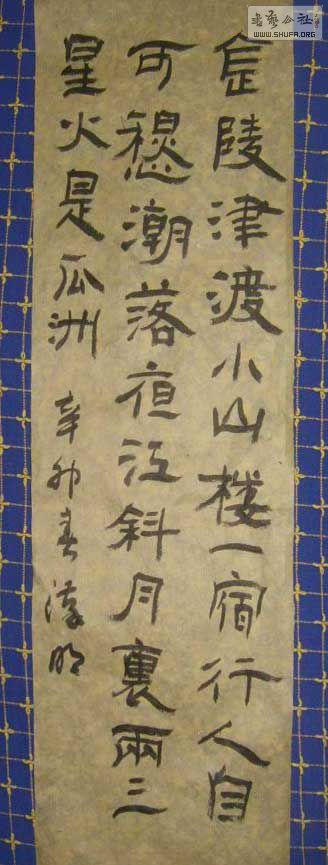 書藝公社
WWW.SHUFA.ORG
金陵津渡小山楼一宿行人自
可愁潮落夜江斜月裏兩三
星火是瓜洲 辛卯春 明